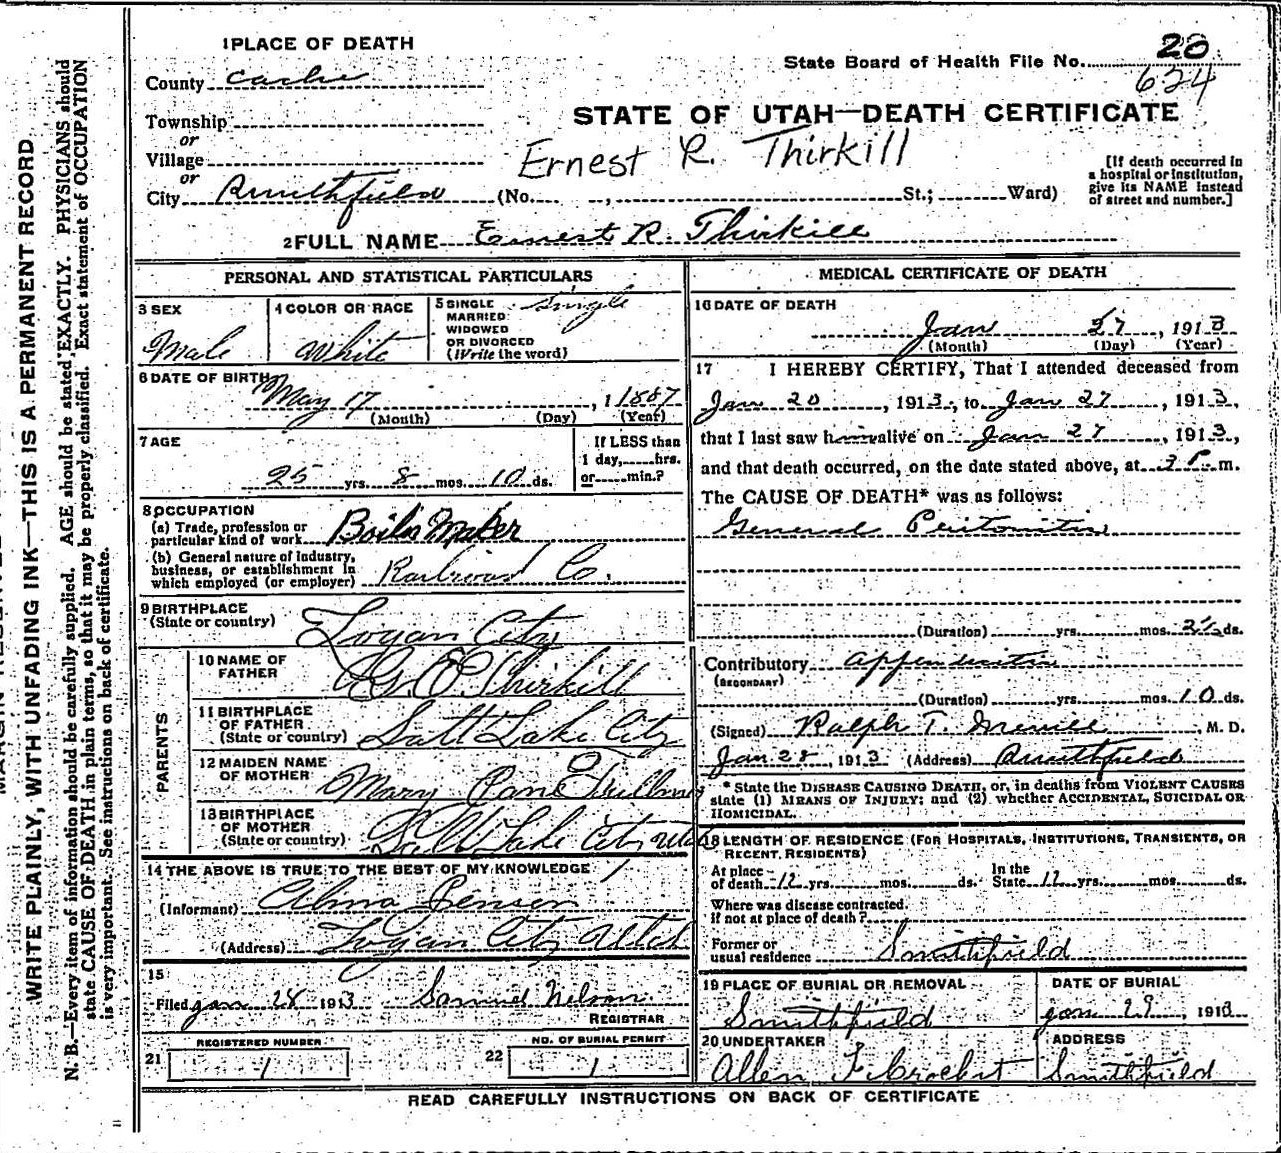 MARGIN RESERVED
WRITE PLAINLY, WITH UNFADING INK—THIS IS A PERMANENT RECORD
N. B.—Every item of information should be carefully supplied. AGE should be stated EXACTLY. PHYSICIANS should
state CAUSE OF DEATH in plain terms, so that it may be properly classified. Exact statement of OCCUPATION
is very important. See instructions on back of certificate.
1 PLACE OF DEATH
State Board of Health File No. 20
624
County Cache
STATE OF UTAH—DEATH CERTIFICATE
Township
or
Village
Ernest R. Thirkill
or
City Smithfield (No. , St.; Ward)
[If death occurred in
a hospital or institution,
give its NAME instead
of street and number.]
2 FULL NAME Ernest R. Thirkill
PERSONAL AND STATISTICAL PARTICULARS
3 SEX
Male
4 COLOR OR RACE
White
5 SINGLE
MARRIED
WIDOWED
OR DIVORCED
(Write the word)
Single
6 DATE OF BIRTH
May 17, 1 1887
(Month) (Day) (Year)
7 AGE
25 yrs. 8 mos. 10 ds.
If LESS than
1 day, hrs.
or min.?
8 OCCUPATION
(a) Trade, profession or
particular kind of work Boiler Maker
(b) General nature of industry,
business, or establishment in
which employed (or employer) Railroad Co.
9 BIRTHPLACE
(State or country) Logan City
PARENTS
10 NAME OF
FATHER G E Thirkill
11 BIRTHPLACE
OF FATHER
(State or country) Salt Lake City
12 MAIDEN NAME
OF MOTHER Mary Jane
13 BIRTHPLACE
OF MOTHER
(State or country) Salt Lake City Utah
14 THE ABOVE IS TRUE TO THE BEST OF MY KNOWLEDGE
(Informant) Alma Jensen
(Address) Logan City Utah
15
Filed Jan 28 1913 Samuel Nelson
REGISTRAR
21 REGISTERED NUMBER
1
22 NO. OF BURIAL PERMIT
1
MEDICAL CERTIFICATE OF DEATH
16 DATE OF DEATH
Jan 27, 1913
(Month) (Day) (Year)
17 I HEREBY CERTIFY, That I attended deceased from
Jan 20, 1913, to Jan 27, 1913,
that I last saw him alive on Jan 27, 1913,
and that death occurred, on the date stated above, at 3 P. m.
The CAUSE OF DEATH* was as follows:
General Peritonitis
(Duration) yrs. mos. 2½ ds.
Contributory appendicitis
(SECONDARY)
(Duration) yrs. mos. 10 ds.
(Signed) Ralph T. Merrill, M. D.
Jan 28, 1913 (Address) Smithfield
* State the DISEASE CAUSING DEATH, or, in deaths from VIOLENT CAUSES
state (1) MEANS OF INJURY; and (2) whether ACCIDENTAL, SUICIDAL OR
HOMICIDAL.
18 LENGTH OF RESIDENCE (FOR HOSPITALS, INSTITUTIONS, TRANSIENTS, OR
RECENT RESIDENTS)
At place
of death 12 yrs. mos. ds.
In the
State 12 yrs. mos. ds.
Where was disease contracted
if not at place of death?
Former or
usual residence Smithfield
19 PLACE OF BURIAL OR REMOVAL
Smithfield
DATE OF BURIAL
Jan 29, 1913
20 UNDERTAKER
Allen
ADDRESS
Smithfield
READ CAREFULLY INSTRUCTIONS ON BACK OF CERTIFICATE